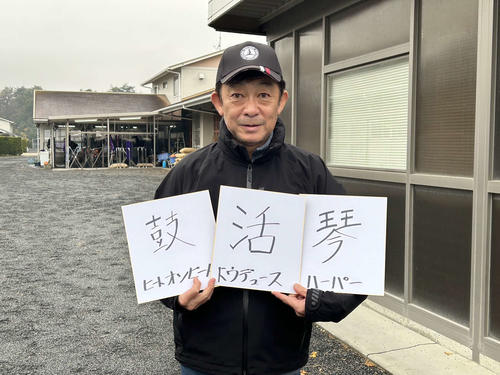 鼓
ヒートオンビー
活
ドウデュース
琴
ハーパー